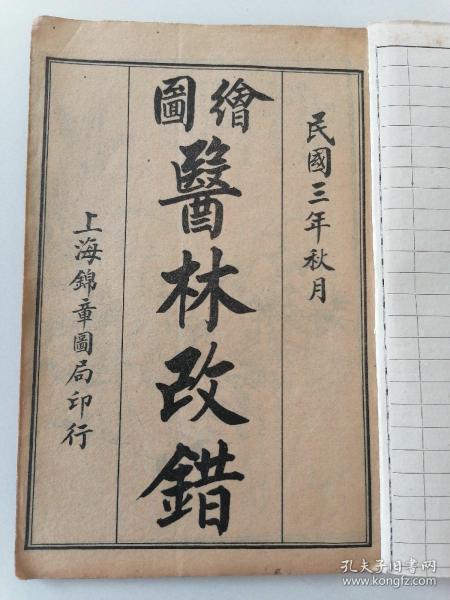 民國三年秋月
繪圖
醫林改錯
上海錦章圖局印行
孔夫子旧书网
www.kongfz.com